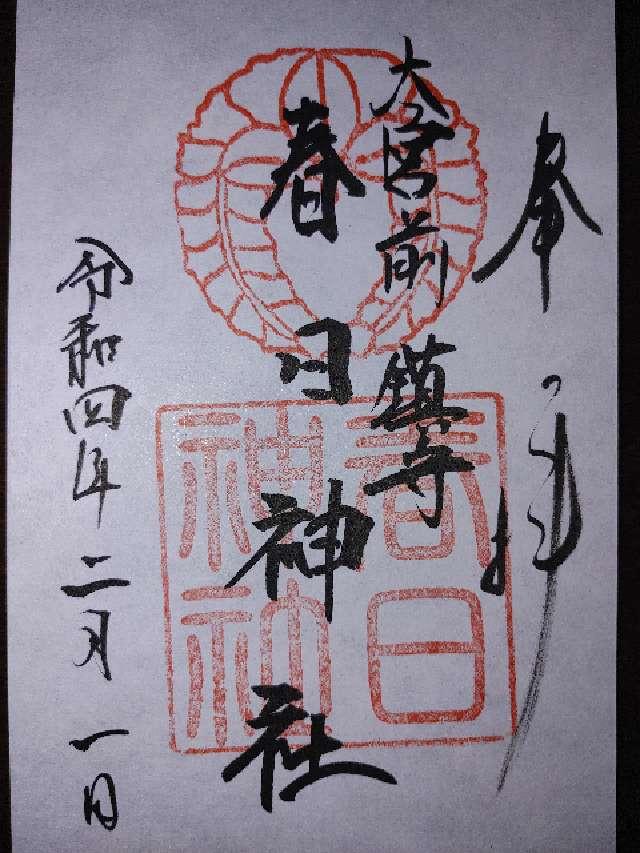 奉拝
大宮前鎮守
春日神社
春日神社
令和四年二月一日